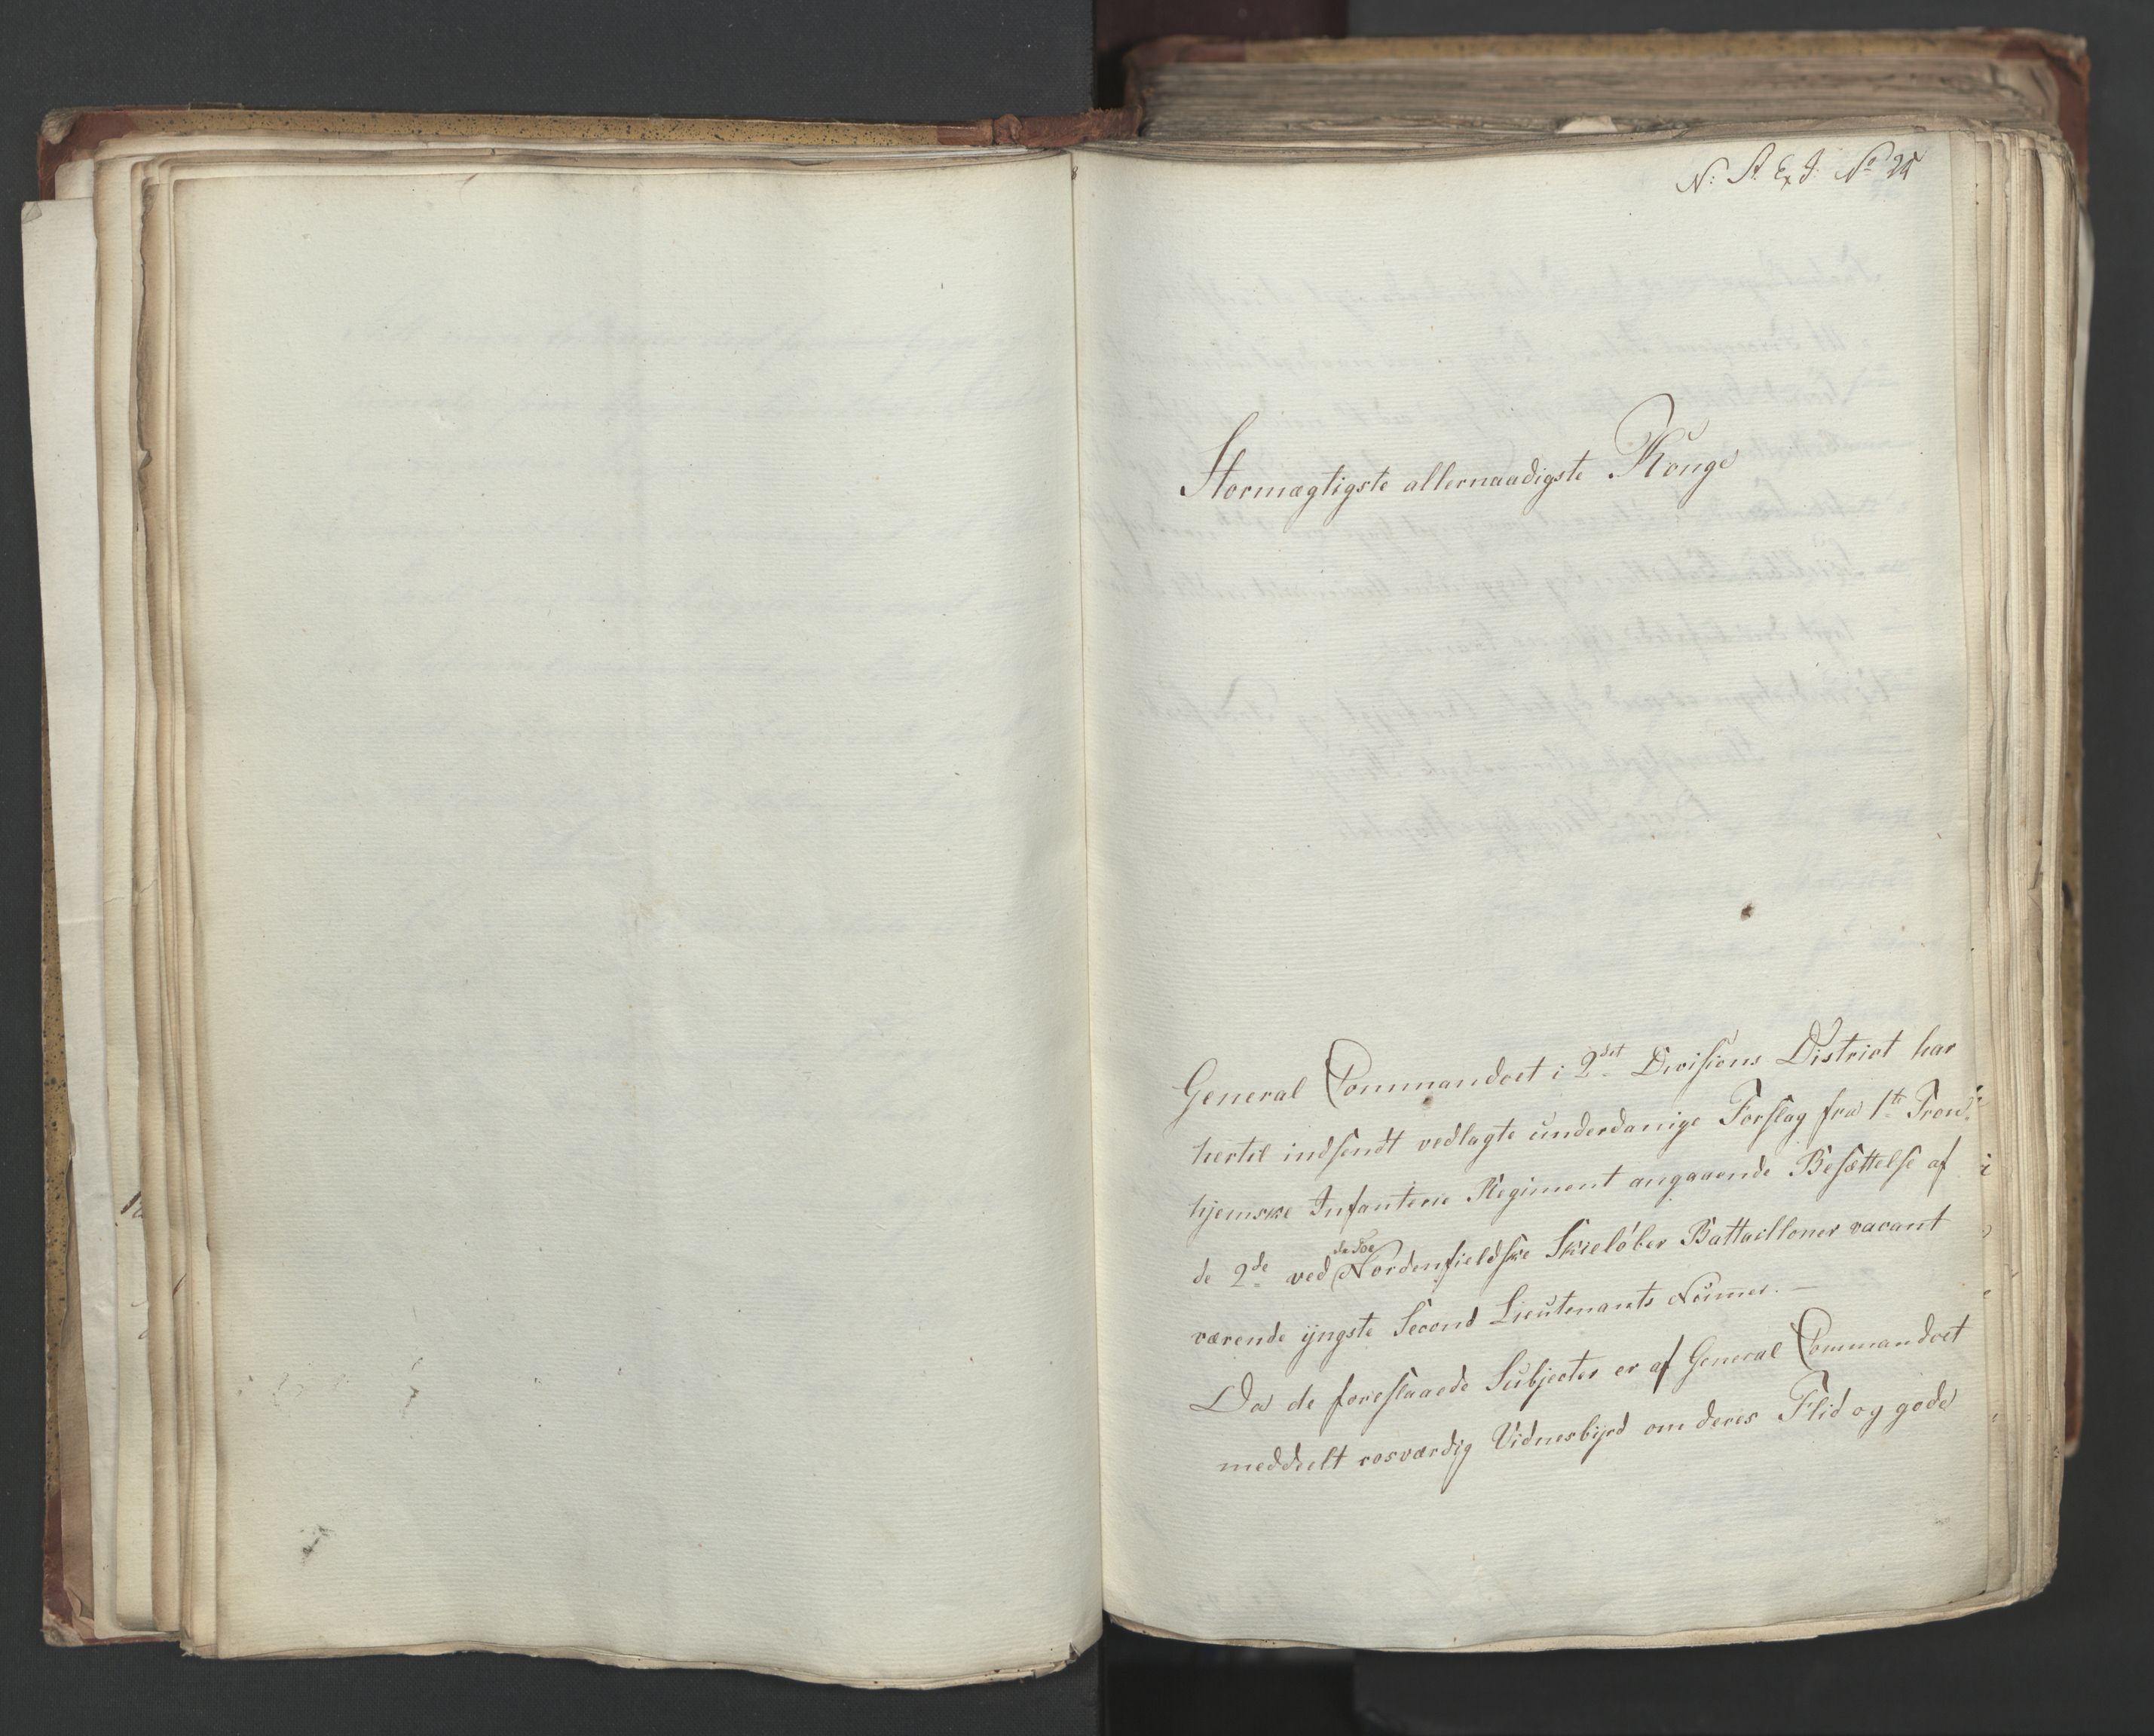 N: A. Ex J. No 24
Stormægtigste allernaadigste Konge
General Commandoet i 2det Divisions District har
hertil indsendt vedlagte underdanige Forslag fra 1te Trond-
hjemske Infanterie Regiment angaaende Besættelse af
de 2de ved de toe Nordenfieldske Skieløber Battailloner vacant
værende ÿngste Second Lieutenants Numer. —
Da de foreslaaede Subjecter er af General Commandoet
meddeelt rosværdig Vidnesbÿrd om deres Flid og gode